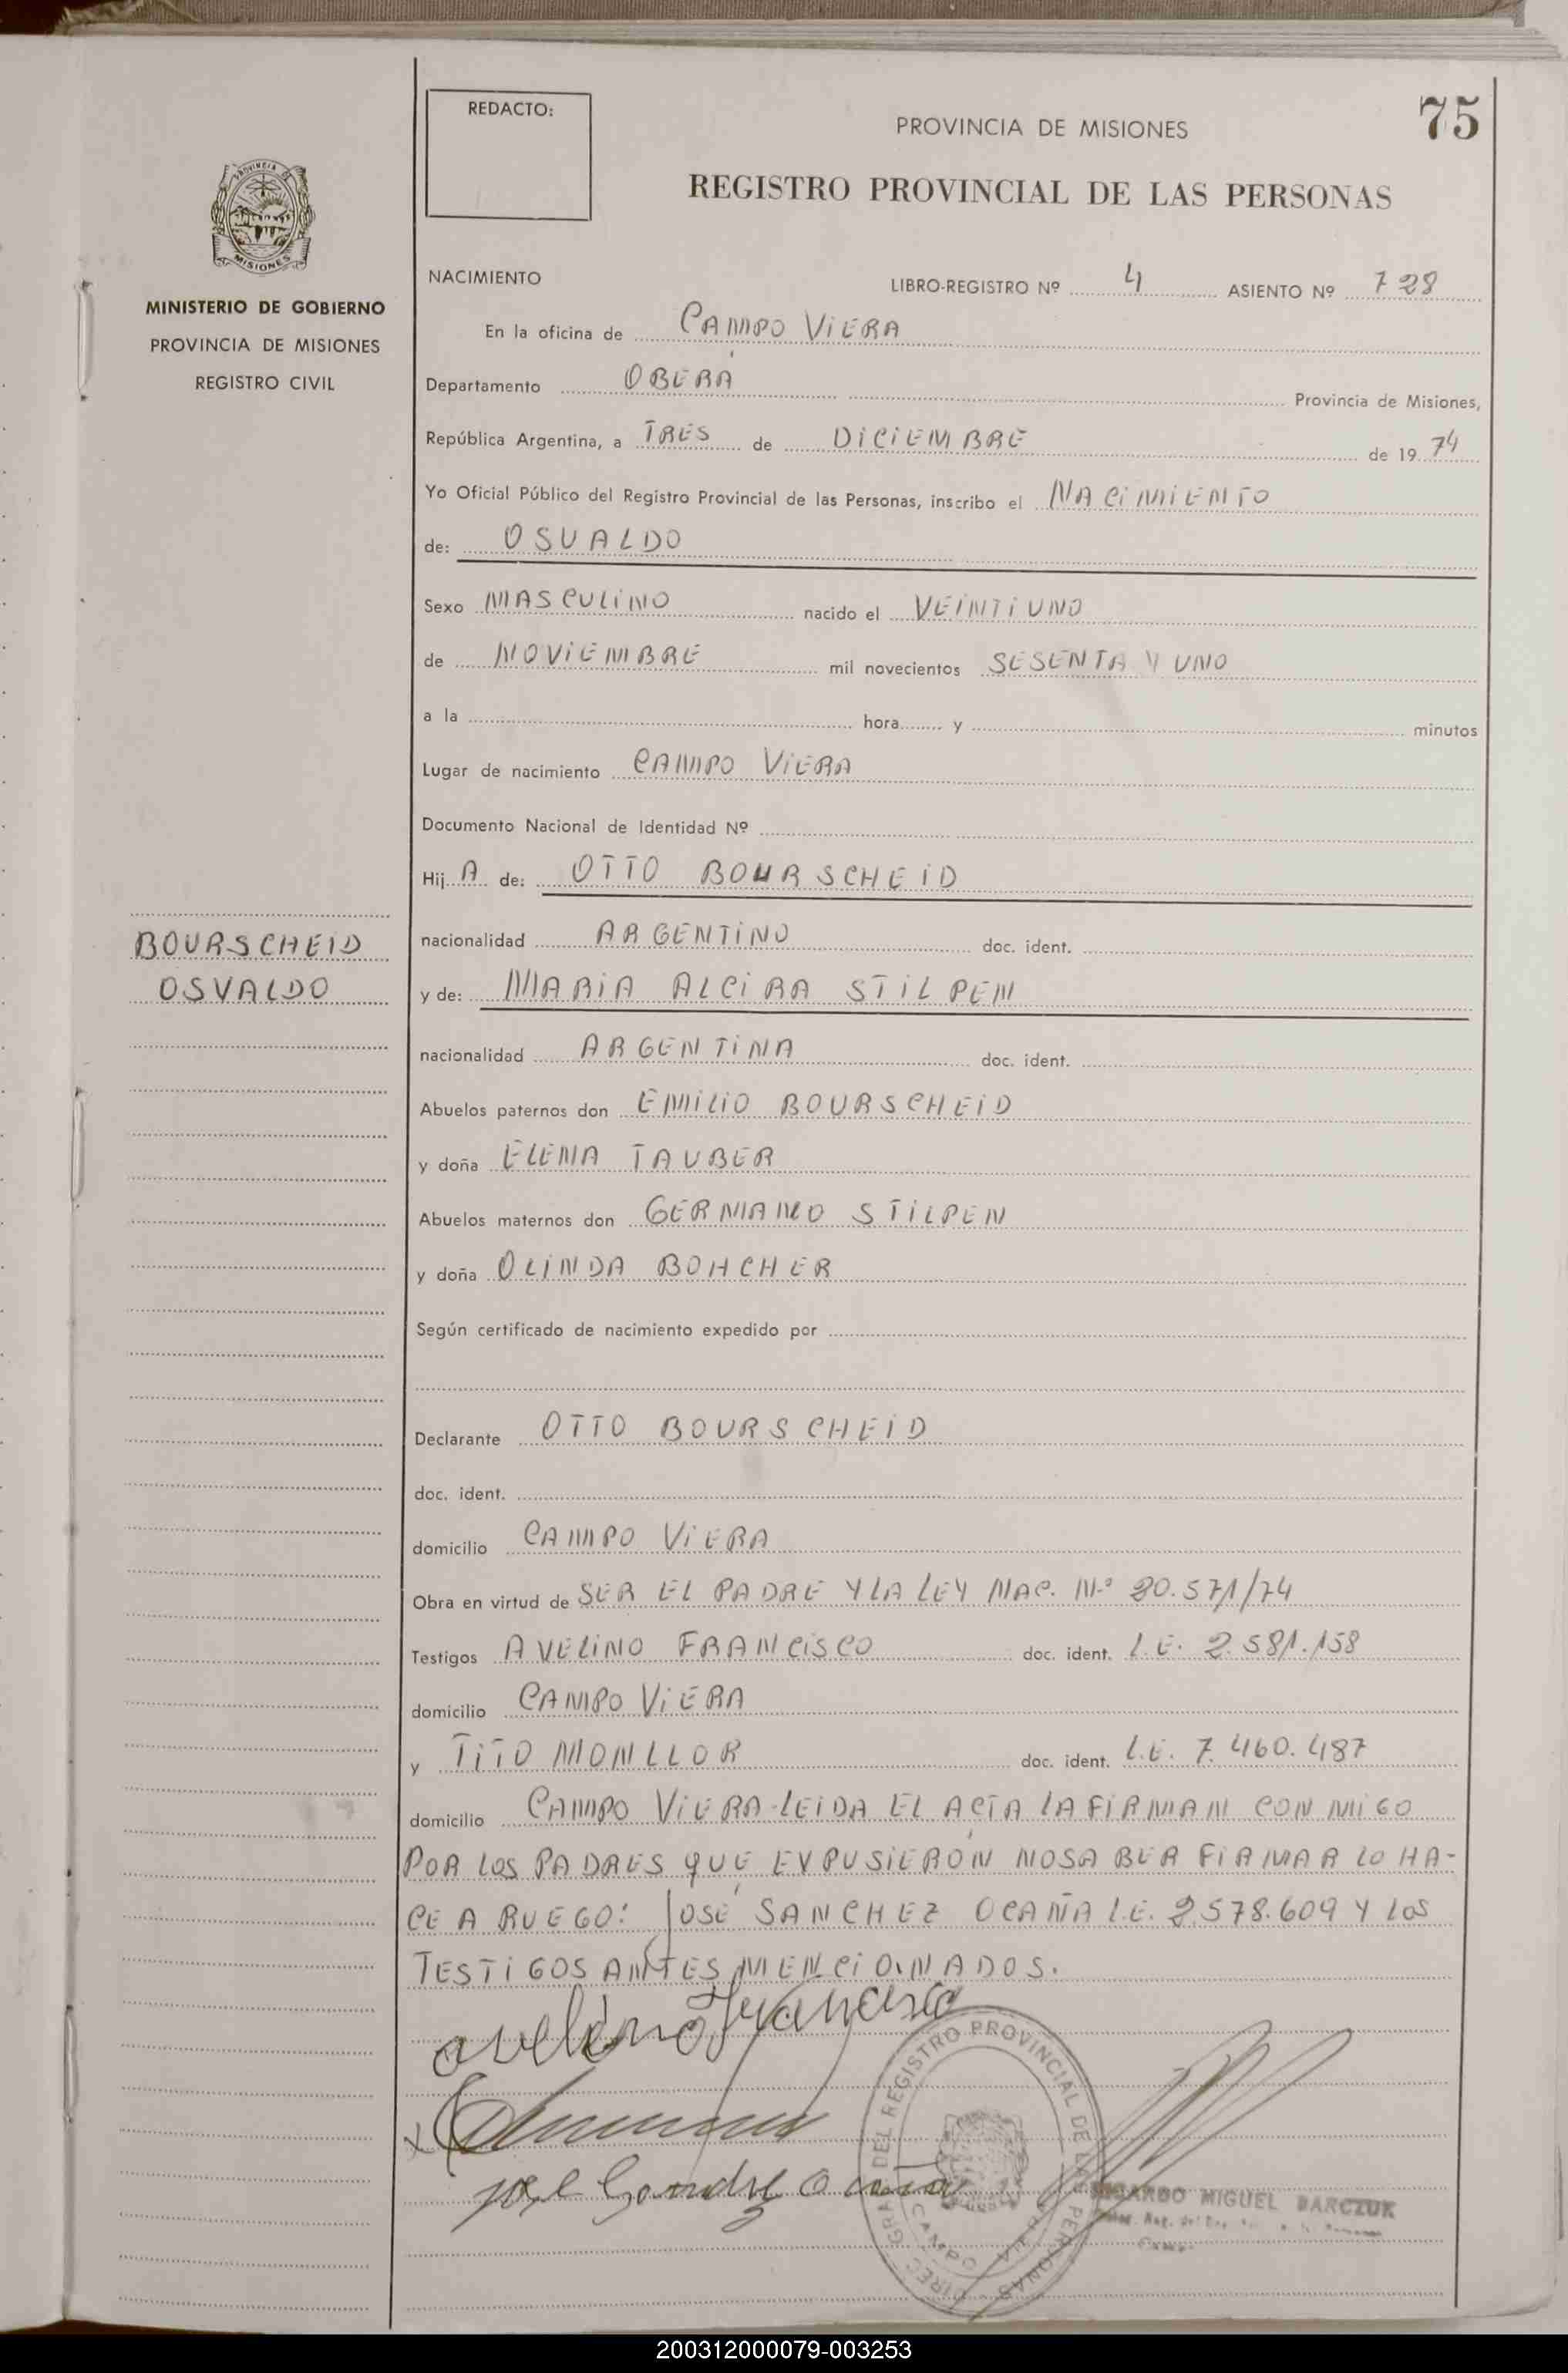 REDACTO:
PROVINCIA DE MISIONES
75
REGISTRO PROVINCIAL DE LAS PERSONAS
PROVINCIA
MISIONES
MINISTERIO DE GOBIERNO
PROVINCIA DE MISIONES
REGISTRO CIVIL
NACIMIENTO LIBRO-REGISTRO Nº 4 ASIENTO Nº 728
En la oficina de CAMPO VIERA
Departamento OBERÁ Provincia de Misiones,
República Argentina, a TRES de DICIEMBRE de 19 74
Yo Oficial Público del Registro Provincial de las Personas, inscribo el NACIMIENTO
de: OSVALDO
Sexo MASCULINO nacido el VEINTIUNO
de NOVIEMBRE mil novecientos SESENTA Y UNO
a la hora y minutos
Lugar de nacimiento CAMPO VIERA
Documento Nacional de Identidad Nº
Hij A de: OTTO BOURSCHEID
BOURSCHEID
OSVALDO
nacionalidad ARGENTINO doc. ident.
y de: MARIA ALCIRA STILPEN
nacionalidad ARGENTINA doc. ident.
Abuelos paternos don EMILIO BOURSCHEID
y doña ELENA TAUBER
Abuelos maternos don GERMANO STILPEN
y doña OLINDA BOHCHER
Según certificado de nacimiento expedido por
Declarante OTTO BOURSCHEID
doc. ident.
domicilio CAMPO VIERA
Obra en virtud de SER EL PADRE Y LA LEY NAC. Nº 20.571/74
Testigos AVELINO FRANCISCO doc. ident. L.E. 2.581.158
domicilio CAMPO VIERA
y TITO MONLLOR doc. ident. L.E. 7.460.487
domicilio CAMPO VIERA-LEIDA EL ACTA LA FIRMAN CON MIGO
POR LOS PADRES QUE EXPUSIERÓN NO SABER FIRMAR LO HA-
CE A RUEGO: JOSÉ SANCHEZ OCAÑA L.E. 2.578.609 Y LOS
TESTIGOS ANTES MENCIONADOS.
avelino Francisco
DIREC. GRAL. DEL REGISTRO PROVINCIAL DE LAS PERSONAS
CAMPO VIERA
RICARDO MIGUEL BARCZUK
200312000079-003253